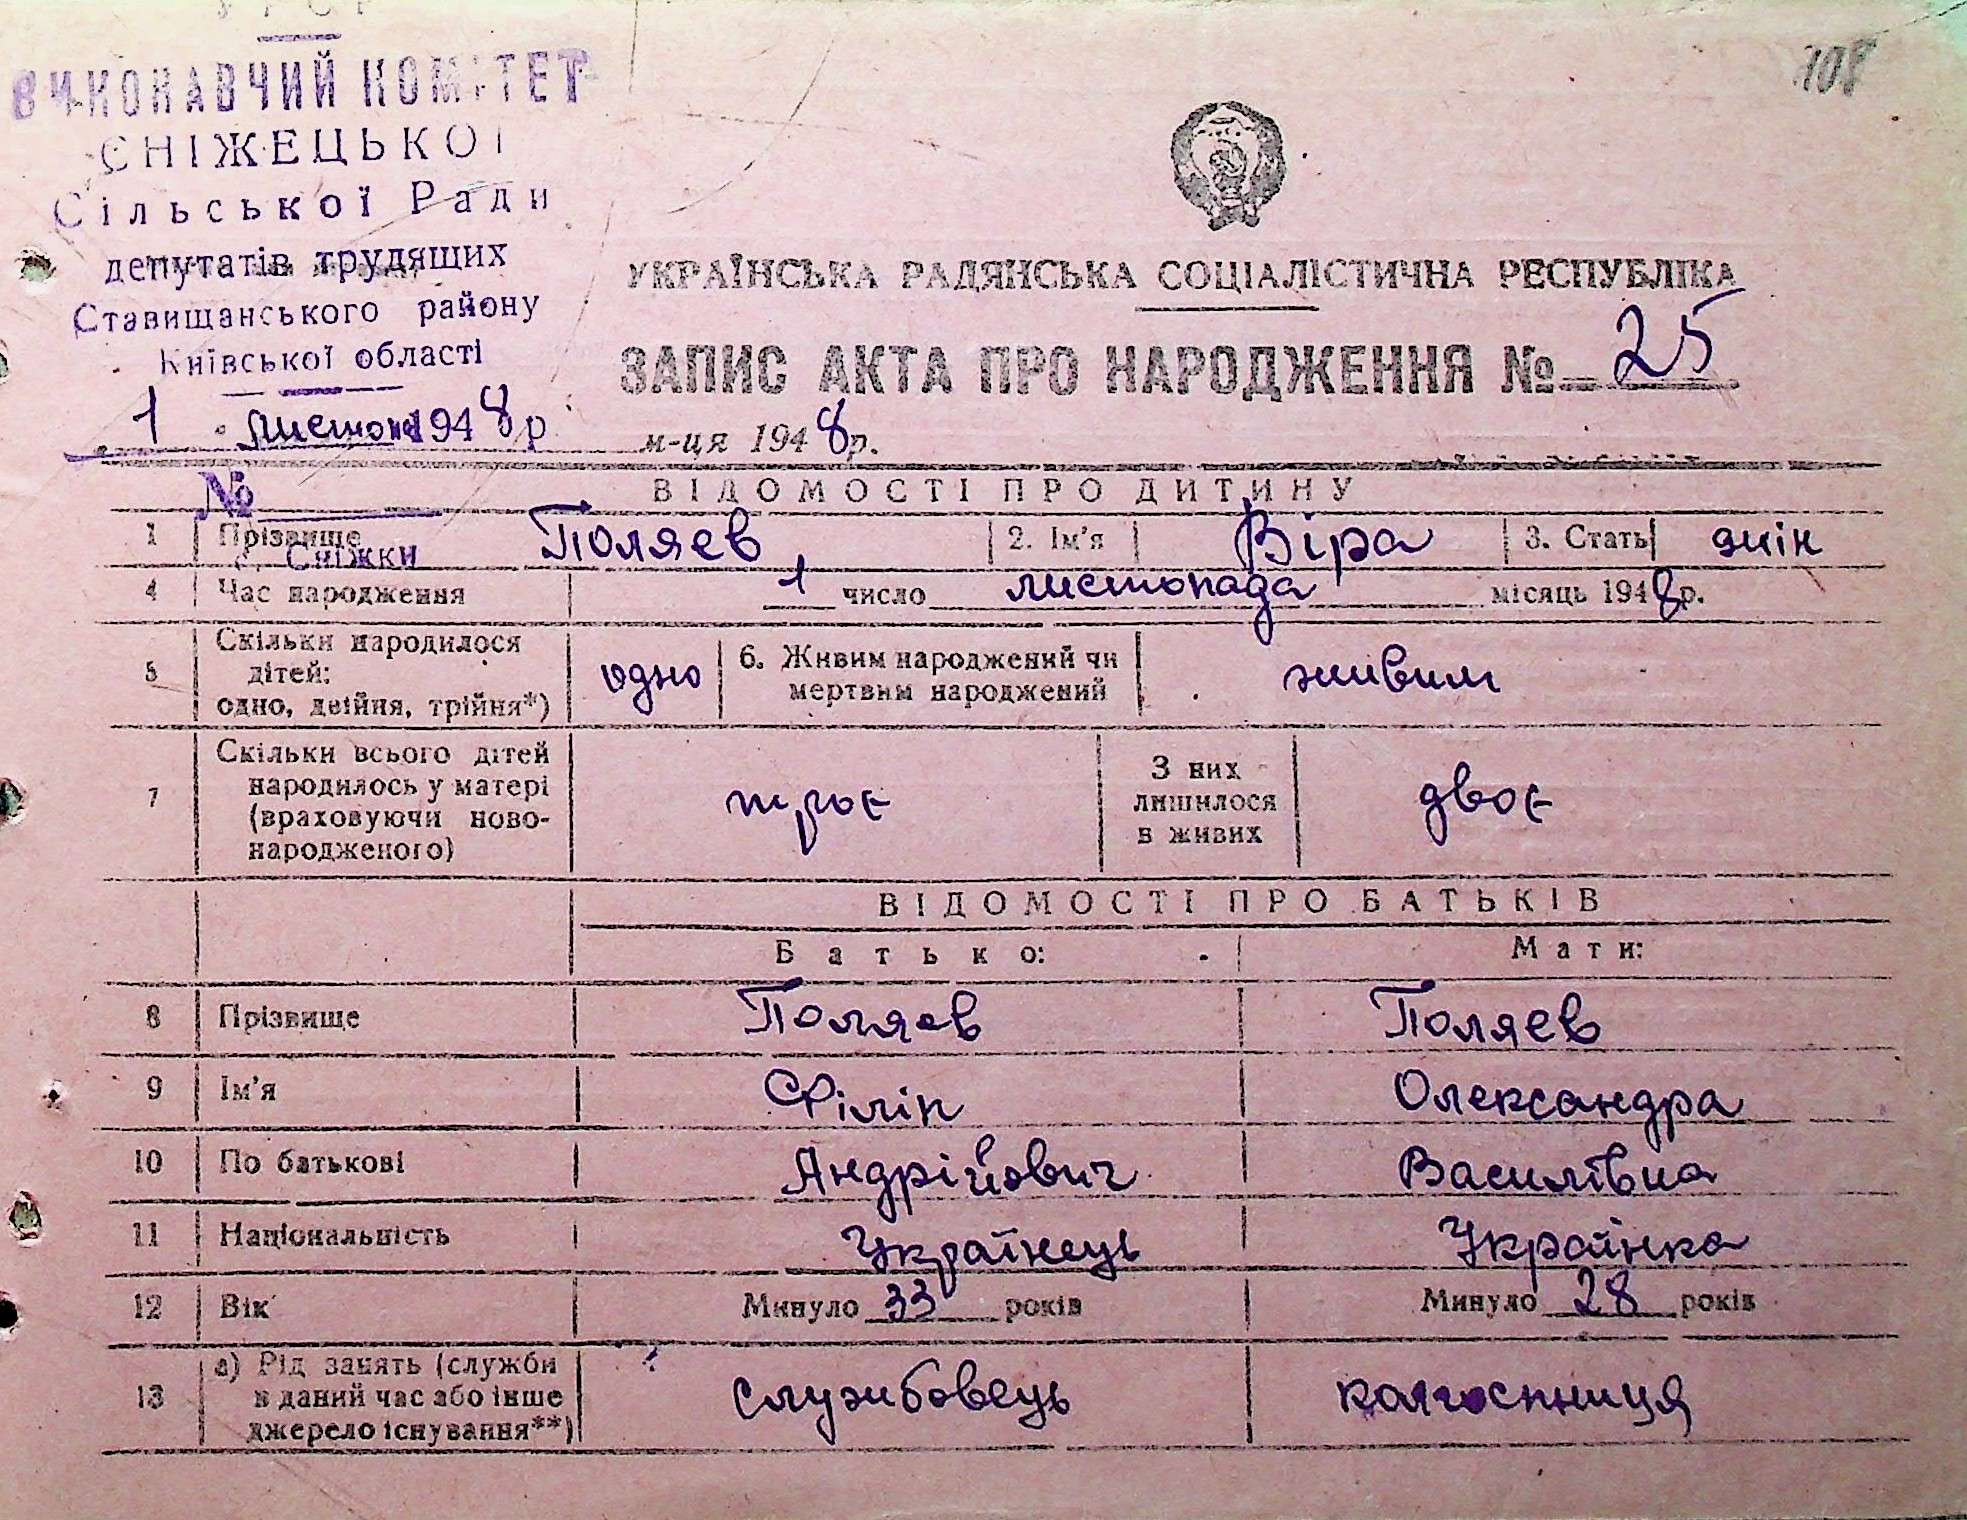 УРСР
ВИКОНАВЧИЙ КОМІТЕТ
СНІЖЕЦЬКОЇ
Сільської Ради
депутатів трудящих
Ставищанського району
Київської області
1 листопа 1948 р
№
с. Сніжки
108
УКРАЇНСЬКА РАДЯНСЬКА СОЦІАЛІСТИЧНА РЕСПУБЛІКА
ЗАПИС АКТА ПРО НАРОДЖЕННЯ № 25
м-ця 1948 р.
ВІДОМОСТІ ПРО ДИТИНУ
1 Прізвище Поляєв 2. Ім'я Віра 3. Стать жін
4 Час народження 1 число листопада місяць 1948 р.
5 Скільки народилося дітей: одно, двійня, трійня*) одно 6. Живим народжений чи мертвим народжений живим
7 Скільки всього дітей народилось у матері (враховуючи новонародженого) троє З них лишилося в живих двоє
ВІДОМОСТІ ПРО БАТЬКІВ
Батько: Мати:
8 Прізвище Поляєв Поляєв
9 Ім'я Філіп Олександра
10 По батькові Андрійович Василівна
11 Національність Українець Українка
12 Вік Минуло 33 років Минуло 28 років
13 а) Рід занять (служби в даний час або інше джерело існування**) службовець колгоспниця